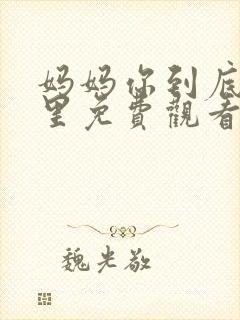 妈妈你到底
里免費觀看
魏光敬